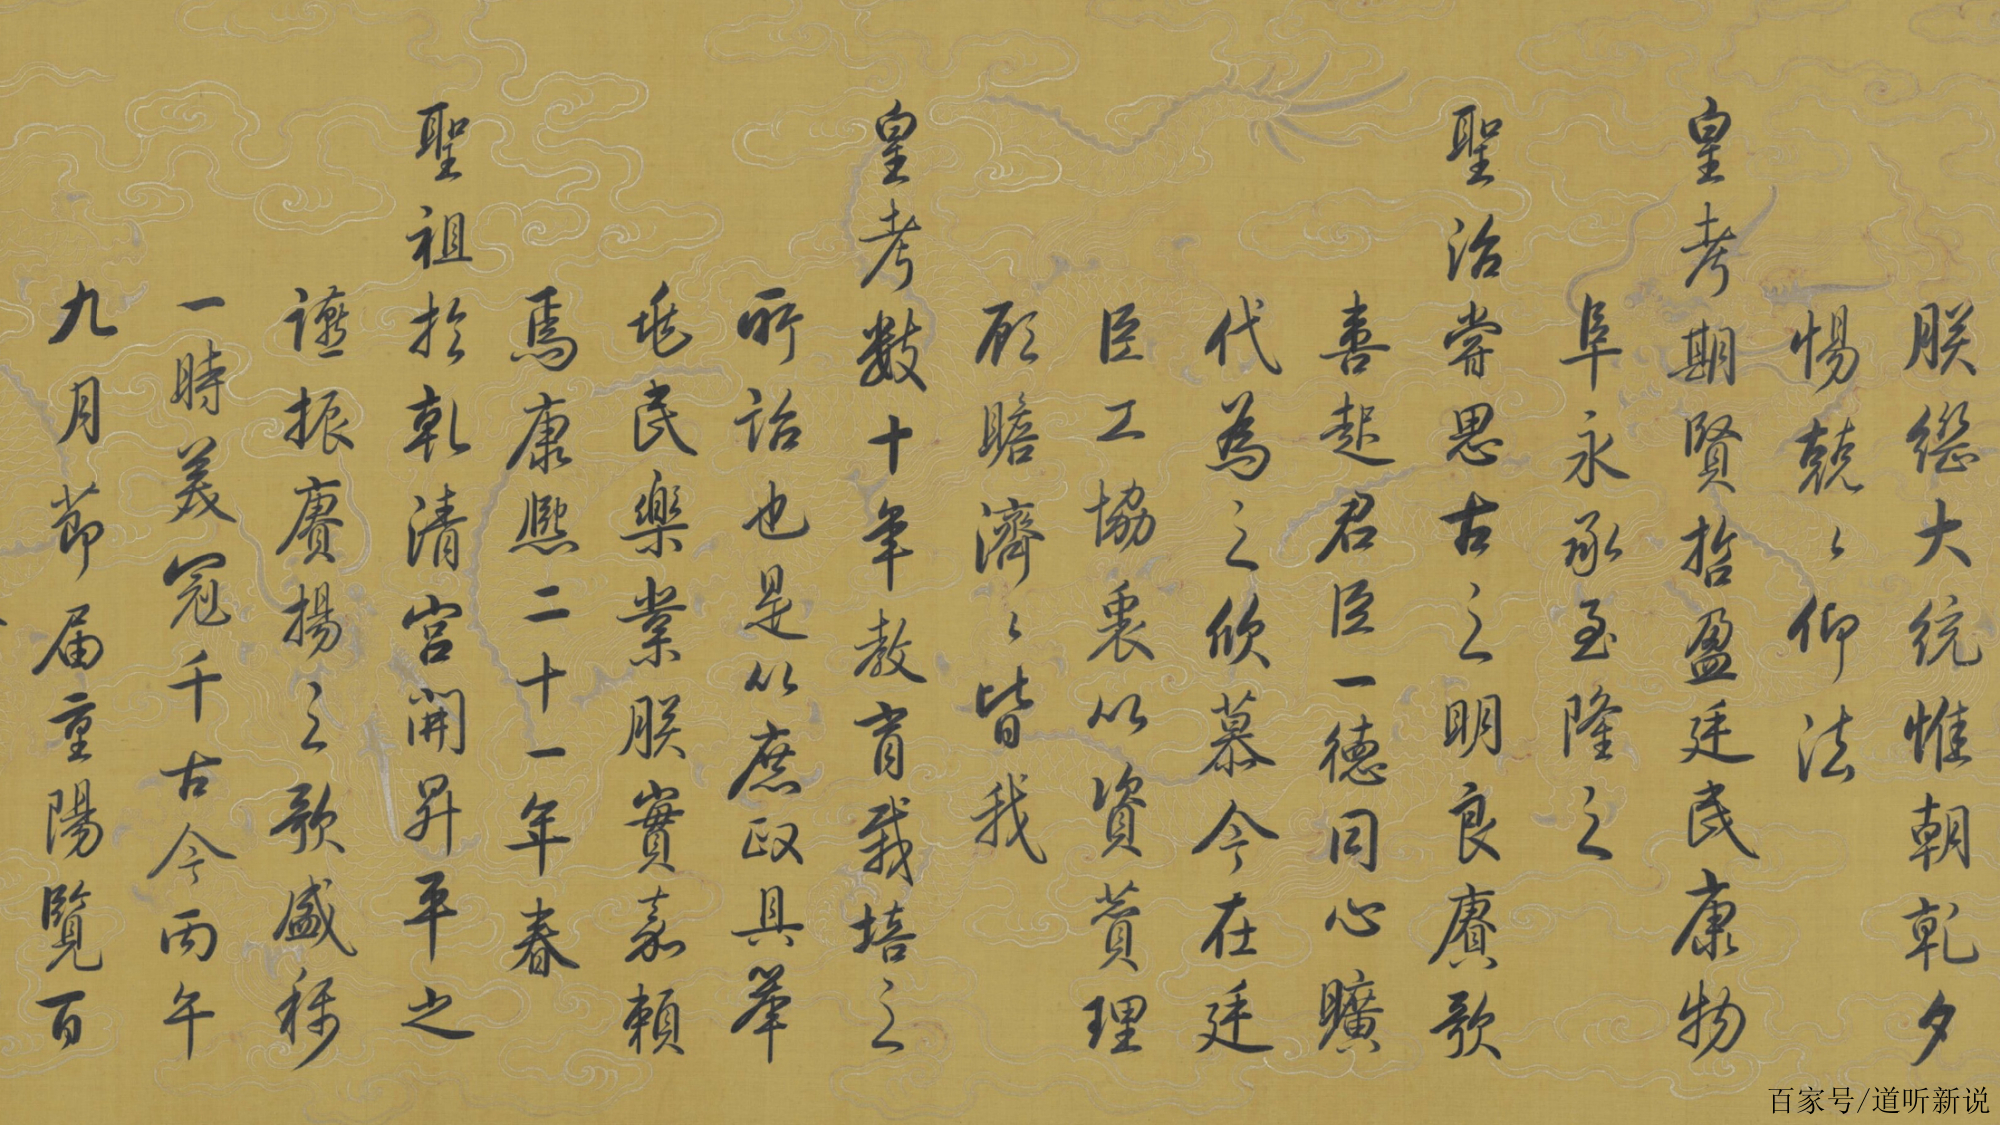 朕繼大統惟朝乾夕
惕兢〻仰法
皇考期賢哲盈廷民康物
阜永承至隆之
聖治嘗思古之明良賡歌
喜起君臣一德同心曠
代為之欣慕今在廷
臣工協衷以資贊理
顧瞻濟〻皆我
皇考數十年教育栽培之
所詒也是以庶政具舉
兆民樂業朕實嘉賴
焉康熙二十一年春
聖祖於乾清宮開昇平之
讌振賡揚之歌盛稱
一時美冠千古今丙午
九月節届重陽覽百
百家号/道听新说